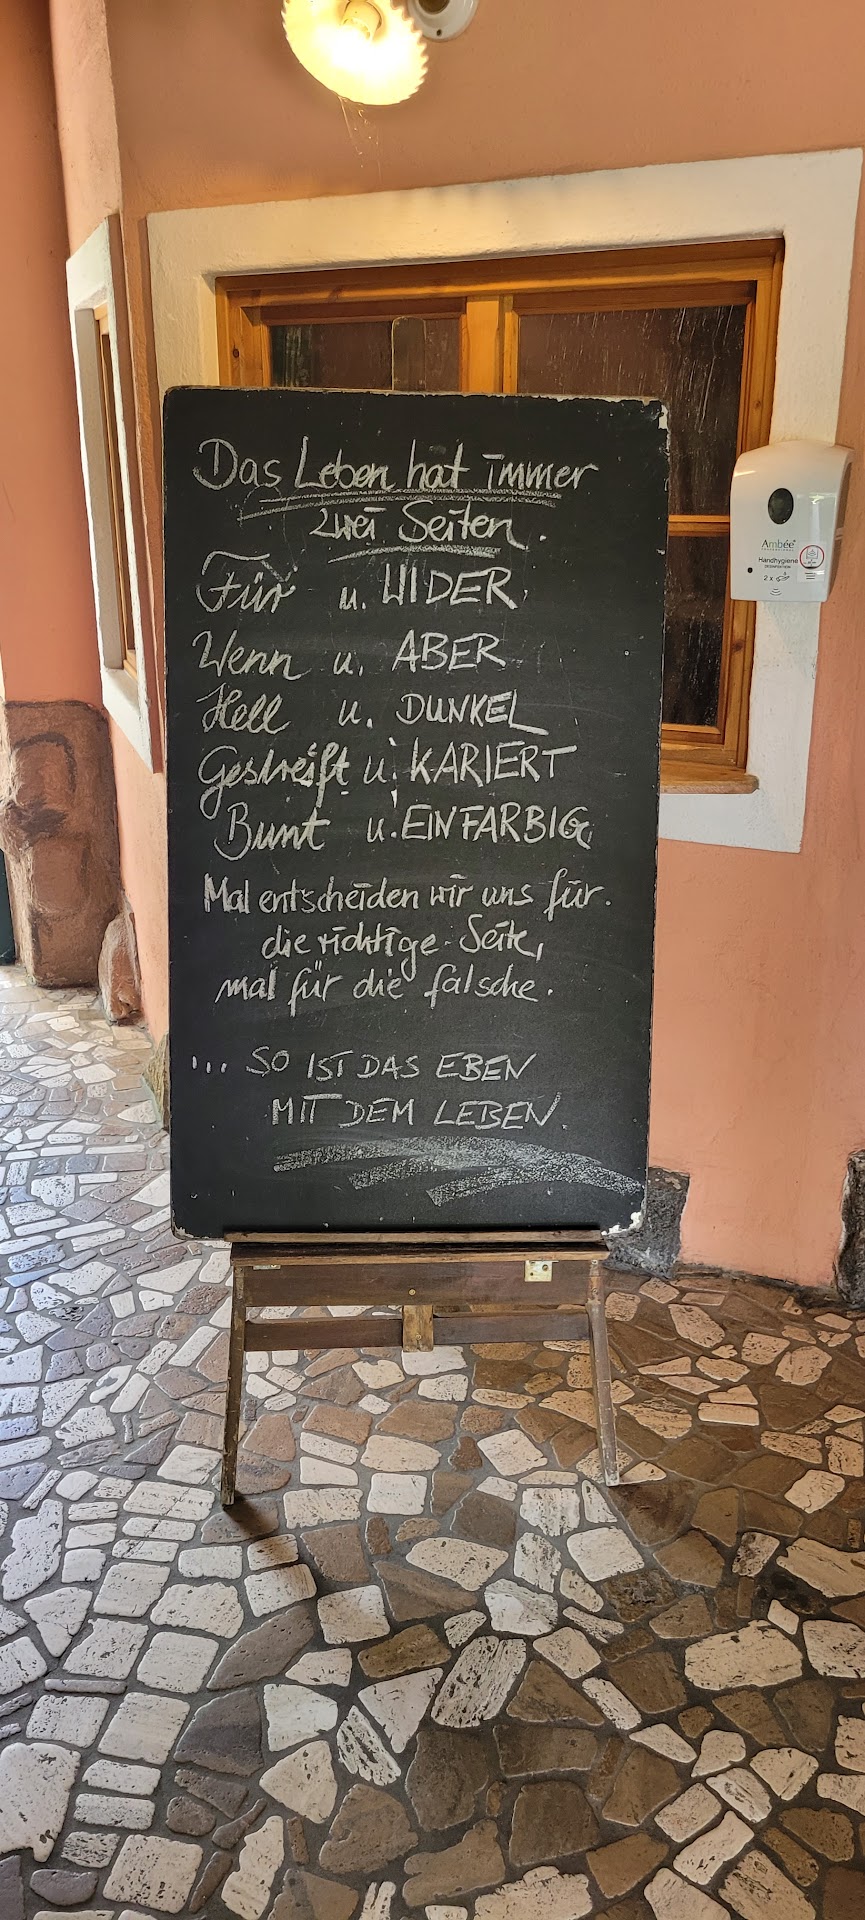 Das Leben hat immer
zwei Seiten.
Für u. WIDER
Wenn u. ABER
Hell u. DUNKEL
Gestreift u. KARIERT
Bunt u. EINFARBIG
Mal entscheiden wir uns für
die richtige Seite,
mal für die falsche.
... SO IST DAS EBEN
MIT DEM LEBEN.
Ambée
Handhygiene
DESINFEKTION
2 x